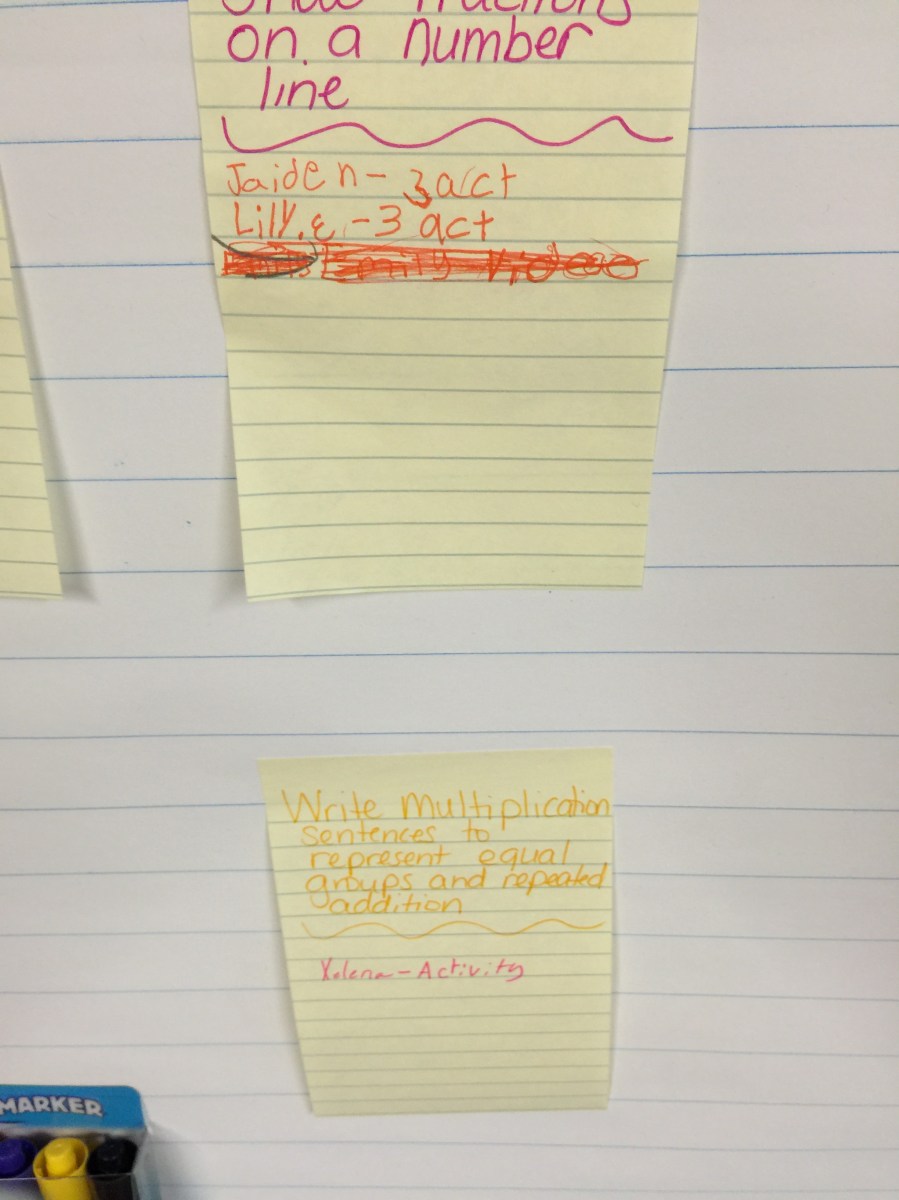 on a number
line
Jaiden - 3 act
Lilly.E - 3 act
Write multiplication
sentences to
represent equal
groups and repeated
addition
Xolena - Activity
MARKER